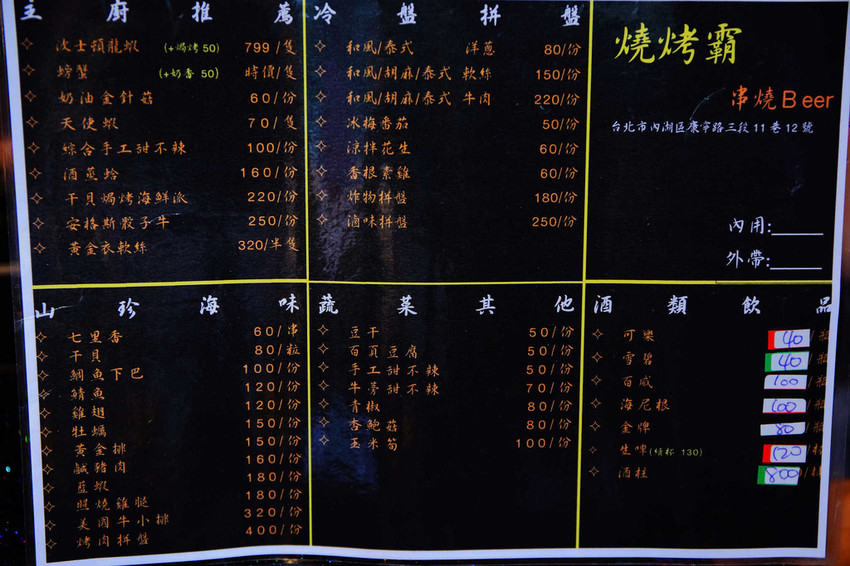 主廚推薦
波士頓龍蝦 (+焗烤50) 799/隻
螃蟹 (+奶香50) 時價/隻
奶油金針菇 60/份
天使蝦 70/隻
綜合手工甜不辣 100/份
酒蒸蛤 160/份
干貝焗烤海鮮派 220/份
安格斯骰子牛 250/份
黃金衣軟絲 320/半隻
冷盤拼盤
和風/泰式 洋蔥 80/份
和風/胡麻/泰式 軟絲 150/份
和風/胡麻/泰式 牛肉 220/份
冰梅番茄 50/份
涼拌花生 60/份
香根素雞 60/份
炸物拼盤 180/份
滷味拼盤 250/份
燒烤霸
串燒Beer
台北市內湖區康寧路三段11巷12號
內用:
外帶:
山珍海味
七里香 60/串
干貝 80/粒
鯛魚下巴 100/份
鯖魚 120/份
雞翅 120/份
牡蠣 150/份
黃金排 150/份
鹹豬肉 160/份
藍蝦 180/份
照燒雞腿 180/份
美國牛小排 320/份
烤肉拼盤 400/份
蔬菜其他
豆干 50/份
百頁豆腐 50/份
手工甜不辣 50/份
牛蒡甜不辣 70/份
青椒 80/份
杏鮑菇 80/份
玉米筍 100/份
酒類飲品
可樂 40/瓶
雪碧 40/瓶
百威 100/瓶
海尼根 100/瓶
金牌 80/瓶
生啤(傾杯 130) 120/
酒柱 800/